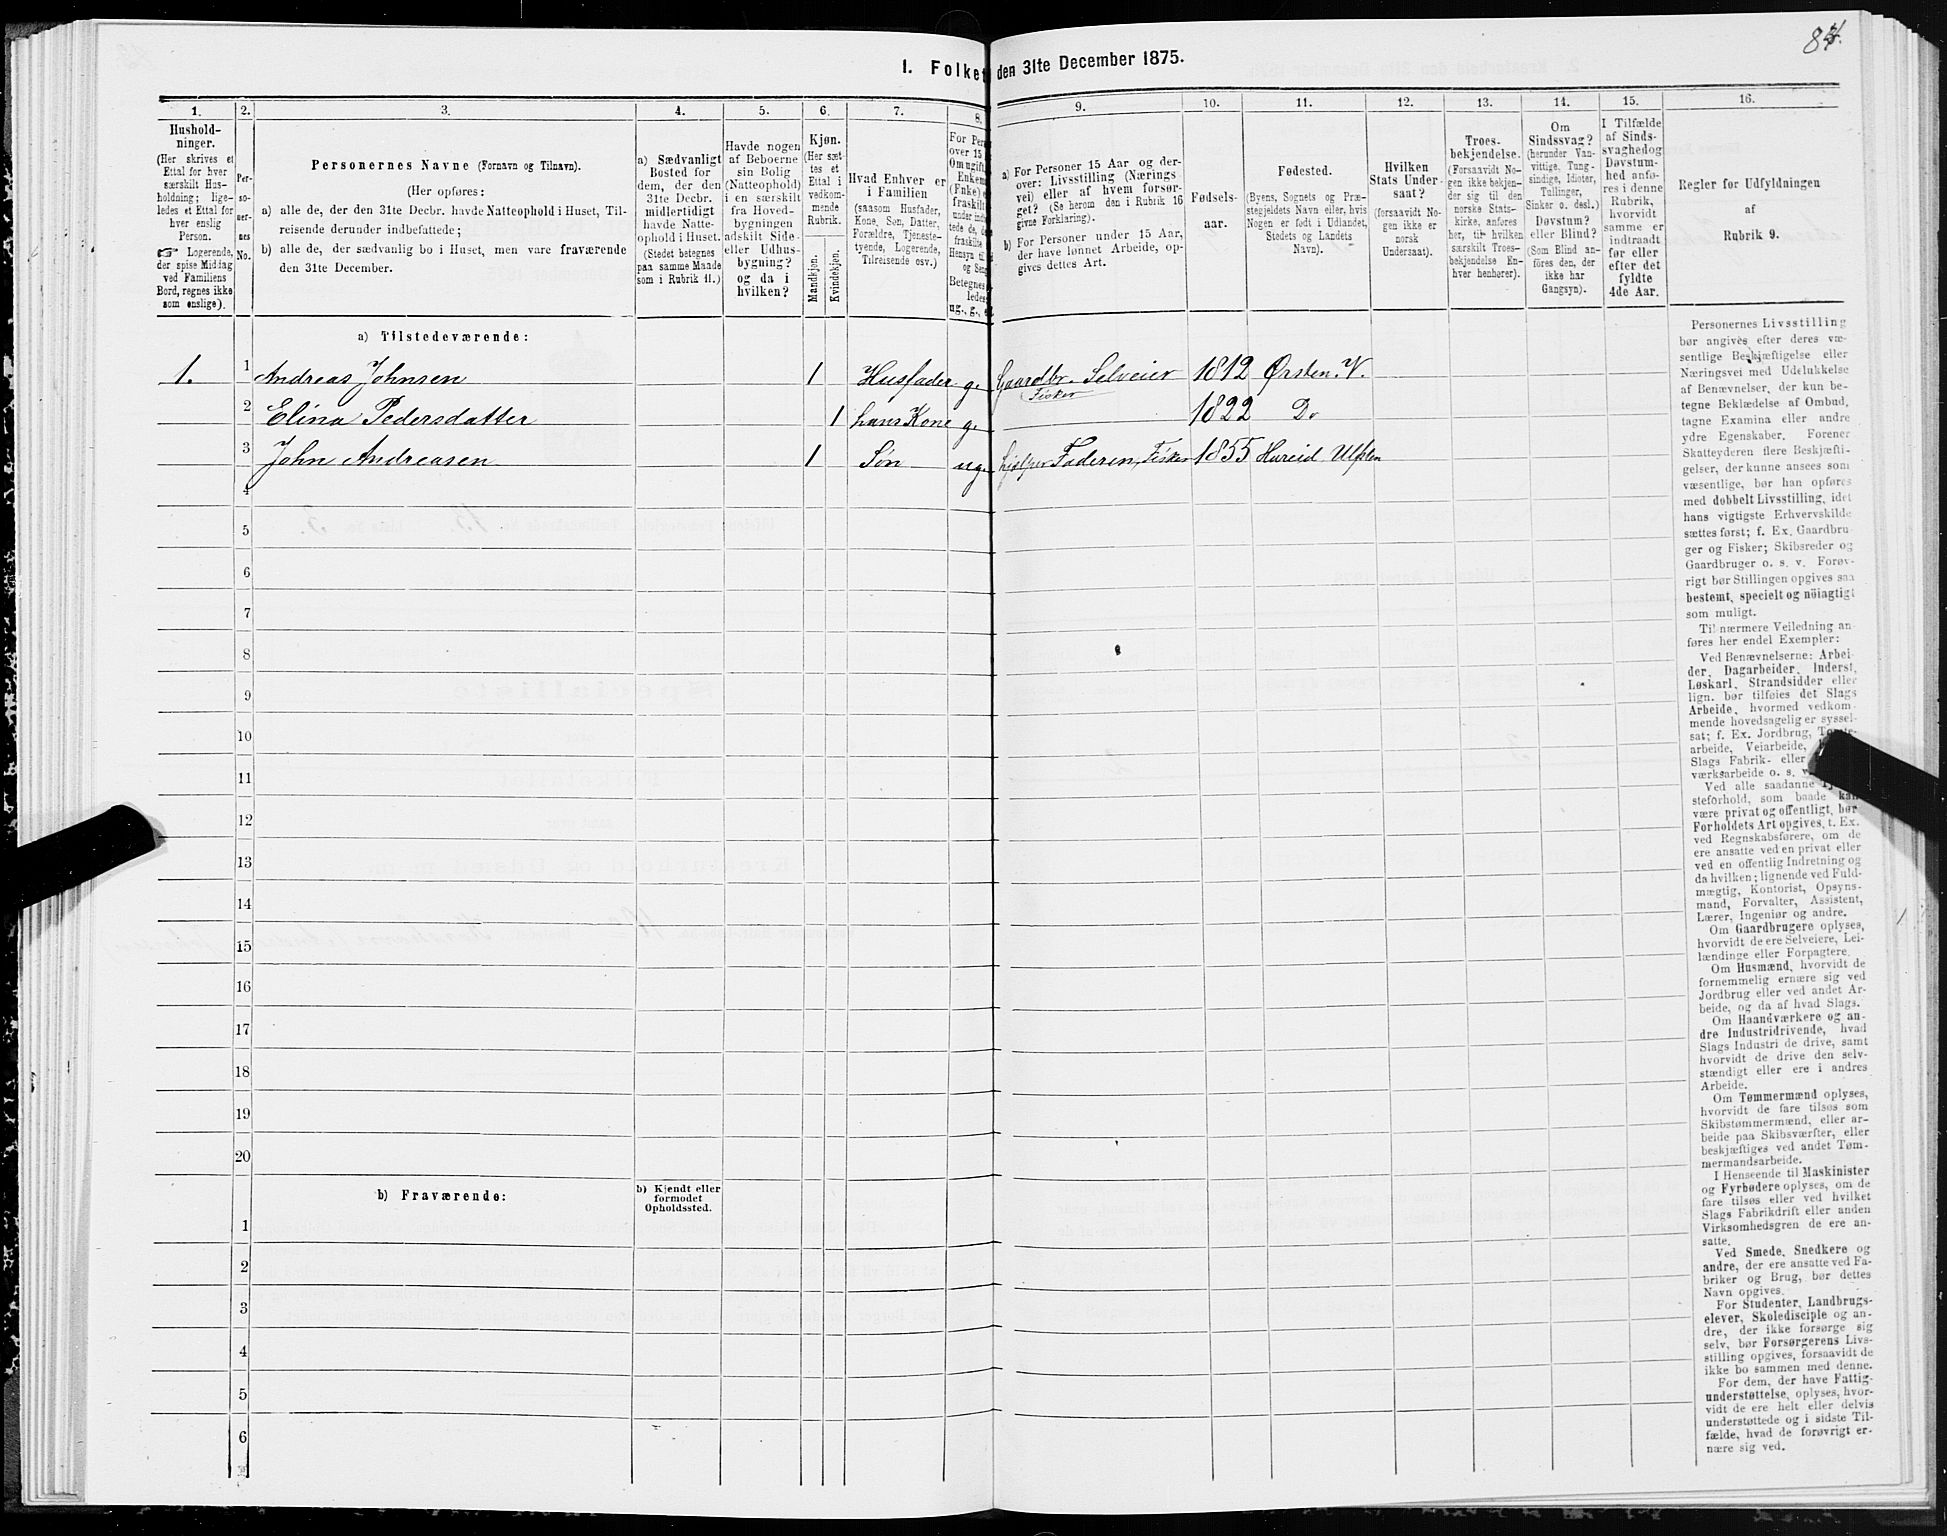 84.
1. Folket den 31te December 1875.
1. 2. 3. 4. 5. 6. 7. 8. 9. 10. 11. 12. 13. 14. 15. 16.
Hushold-
ninger.
(Her skrives et
Ettal for hver
særskilt Hus-
holdning; lige-
ledes et Ettal for
hver enslig
Person.
Logerende,
der spise Middag
ved Familiens
Bord, regnes ikke
som enslige).
Per-
soner-
nes
No.
Personernes Navne (Fornavn og Tilnavn).
(Her opføres:
a) alle de, der den 31te Decbr. havde Natteophold i Huset, Til-
reisende derunder indbefattede;
b) alle de, der sædvanlig bo i Huset, men vare fraværende
den 31te December.
a) Sædvanligt
Bosted for
dem, der den
31te Decbr.
midlertidigt
havde Natte-
ophold i Huset.
(Stedet betegnes
paa samme Maade
som i Rubrik 11.)
Havde nogen
af Beboerne
sin Bolig
(Natteophold)
i en særskilt
fra Hoved-
bygningen
adskilt Side-
eller Udhus-
bygning?
og da i
hvilken?
Kjøn.
(Her sæt-
tes et
Ettal i
vedkom-
mende
Rubrik.
Mandkjøn.
Kvindekjøn.
Hvad Enhver er
i Familien
(saasom Husfader,
Kone, Søn, Datter,
Forældre, Tjeneste-
tyende, Logerende,
Tilreisende osv.)
For Per
over 15
Om ugift
Enkem
(Fnke)
fraskilt
Betegnes
ledes
ug., g., e
a) For Personer 15 Aar og der-
over: Livsstilling (Nærings
vei) eller af hvem forsør-
get? (Se herom den i Rubrik 16
givne Forklaring).
b) For Personer under 15 Aar,
der have lønnet Arbeide, op-
gives dettes Art.
Fødsels-
aar.
Fødested.
(Byens, Sognets og Præ-
stegjeldets Navn eller, hvis
Nogen er født i Udlandet,
Stedets og Landets
Navn).
Hvilken
Stats Under-
saat?
(forsaavidt No-
gen ikke er
norsk
Undersaat).
Troes-
bekjendelse.
(Forsaavidt No-
gen ikke bekjen-
der sig til den
norske Stats-
kirke, anføres
her, til hvilken
særskilt Troes-
bekjendelse En-
hver henhører).
Om
Sindssvag?
(herunder Van-
vittige, Tung-
sindige, Idioter,
Tullinger,
Sinker o. desl.)
Døvstum?
eller Blind?
(Som Blind an-
føres den, der
ikke har
Gangsyn).
I Tilfælde
af Sinds-
svaghed og
Døvstum-
hed anfø-
res i denne
Rubrik,
hvorvidt
samme er
indtraadt
før eller
efter det
fyldte
4de Aar.
Regler for Udfyldningen
af
Rubrik 9.
a) Tilstedeværende:
1. 1 Andreas Johnsen 1 Husfader g. Gaardbr. Selveier 1812 Ørsten. V.
Fisker
2 Elina Pedersdatter 1 hans Kone g. 1822 Do
3 John Andreasen 1 Søn ug. hjelper Faderen, Fisker 1855 Hareid Ulfsten
4
5
6
7
8
9
10
11
12
13
14
15
16
17
18
19
20
b) Fraværende:
b) Kjendt eller
formodet
Opholdssted.
1
2
3
4
5
6
Personernes Livsstilling
bør angives efter deres væ-
sentlige Beskjæftigelse eller
Næringsvei med Udelukkelse
af Benævnelser, der kun be-
tegne Beklædelse af Ombud,
tagne Examina eller andre
ydre Egenskaber. Forener
Skatteyderen flere Beskjæfti-
gelser, der kunne ansees som
væsentlige, bør han opføres
med dobbelt Livsstilling, idet
hans vigtigste Erhvervskilde
sættes først; f. Ex. Gaardbru-
ger og Fisker; Skibsreder og
Gaardbruger o. s. v. Forøv-
rigt bør Stillingen opgives saa
bestemt, specielt og nöiagtigt
som muligt.
Til nærmere Veiledning an-
føres her endel Exempler:
Ved Benævnelserne: Arbei-
der, Dagarbeider, Inderst,
Løskarl, Strandsidder eller
lign. bør tilføies det Slags
Arbeide, hvormed vedkom-
mende hovedsagelig er syssel-
sat; f. Ex. Jordbrug, Tømte-
arbeide, Veiarbeide,
Slags Fabrik- eller
værksarbeide o. s. v.
Ved alle saadanne
steforhold, som baade kan
være privat og offentligt, bør
Forholdets Art opgives, t. Ex.
ved Regnskabsførere, om de
ere ansatte ved en privat eller
ved en offentlig Indretning og
da hvilken; lignende ved Fuld-
mægtig, Kontorist, Opsyns-
mand, Forvalter, Assistent,
Lærer, Ingeniør og andre.
Om Gaardbrugere oplyses,
hvorvidt de ere Selveiere, Lei-
lændinge eller Forpagtere.
Om Husmænd, hvorvidt de
fornemmelig ernære sig ved
Jordbrug eller ved andet Ar-
beide, og da af hvad Slags.
Om Haandværkere og an-
dre Industridrivende, hvad
Slags Industri de drive, samt
hvorvidt de drive den selv-
stændigt eller ere i andres
Arbeide.
Om Tømmermænd oplyses,
hvorvidt de fare tilsøs som
Skibstømmermænd, eller ar-
beide paa Skibsværfter, eller
beskjæftiges ved andet Tøm-
mermandsarbeide.
I Henseende til Maskinister
og Fyrbødere oplyses, om de
fare tilsøs eller ved hvilket
Slags Fabrikdrift eller anden
Virksomhedsgren de ere an-
satte.
Ved Smede, Snedkere og
andre, der ere ansatte ved Fa-
briker og Brug, bør dettes
Navn opgives.
For Studenter, Landbrugs-
elever, Skoledisciple og an-
dre, der ikke forsørge sig
selv, bør Forsørgerens Livs-
stilling opgives, forsaavidt de
ikke bo sammen med denne.
For dem, der have Fattig-
understøttelse, oplyses, hvor-
vidt de ere helt eller delvis
understøttede og i sidste Til-
fælde, hvad de forøvrigt er-
nære sig ved.